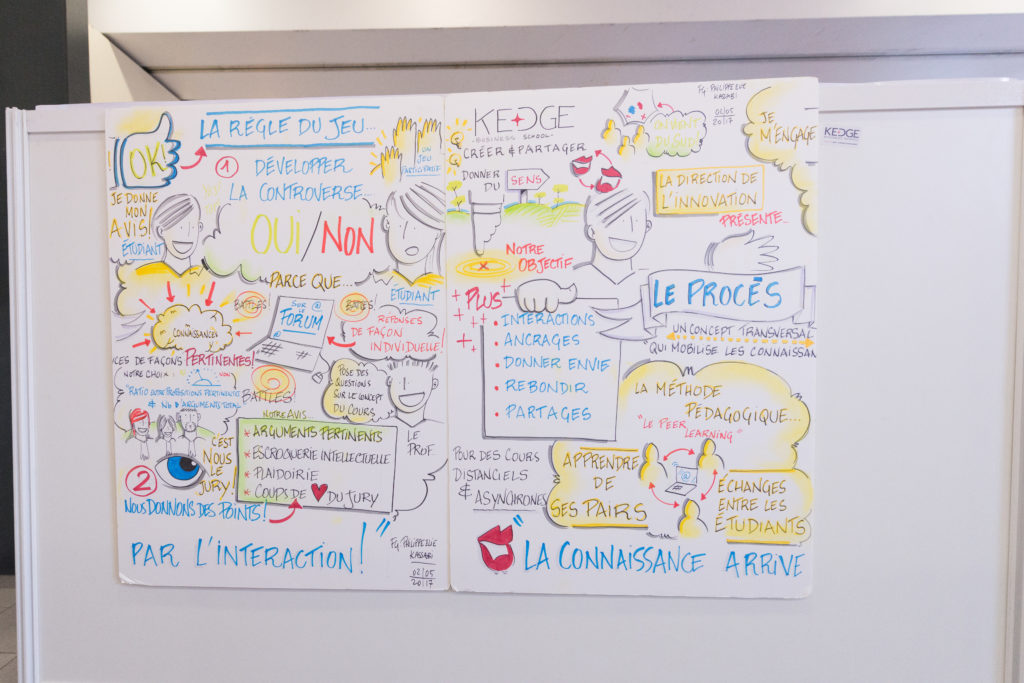 OK!
LA RÈGLE DU JEU...
1
DÉVELOPPER
LA CONTROVERSE...
UN
JEU
PARTICIPATIF
JE DONNE
MON
AVIS!
ÉTUDIANT
OUI/NON
PARCE QUE...
ÉTUDIANT
BATTLES
SUR
LE
FORUM
@
BATTLES
RÉPONSES
DE FAÇON
INDIVIDUELLE!
CONNAISSANCES
DE FAÇONS PERTINENTES!
NOTRE CHOIX:
OUI
NON
"RATIO ENTRE PROPOSITIONS PERTINENTES
& Nb D'ARGUMENTS TOTAL"
BATTLES!
POSE DES
QUESTIONS
SUR LE CONCEPT
DU COURS
LE
PROF.
NOTRE AVIS...
* ARGUMENTS PERTINENTS
* ESCROQUERIE INTELLECTUELLE
* PLAIDOIRIE
* COUPS DE ♥ DU JURY
C'EST
NOUS
LE
JURY!
2
NOUS DONNONS DES POINTS!
PAR L'INTERACTION!"
02/05
2017
KEDGE
BUSINESS SCHOOL
CRÉER & PARTAGER
DONNER
DU
SENS
ON VIENT
DU SUD!
02/05
2017
JE
M'ENGAGE
LA DIRECTION DE
L'INNOVATION
PRÉSENTE...
NOTRE
OBJECTIF
PLUS
• INTERACTIONS
• ANCRAGES
• DONNER ENVIE
• REBONDIR
• PARTAGES
LE PROCÈS
UN CONCEPT TRANSVERSAL
QUI MOBILISE LES CONNAISSAN
LA MÉTHODE
PÉDAGOGIQUE...
"LE PEER
LEARNING"
POUR DES COURS
DISTANCIELS
& ASYNCHRONES
APPRENDRE
DE
SES PAIRS
@
ÉCHANGES
ENTRE LES
ÉTUDIANTS
"LA CONNAISSANCE ARRIVE
KEDGE